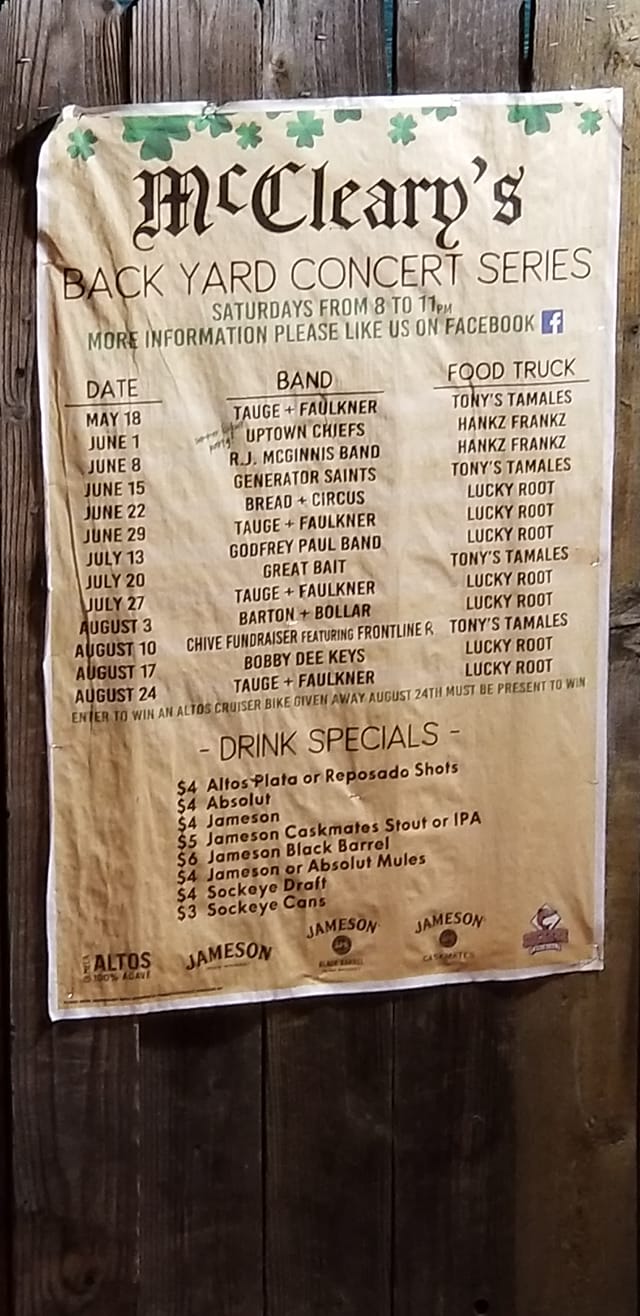 McCleary's
BACK YARD CONCERT SERIES
SATURDAYS FROM 8 TO 11PM
MORE INFORMATION PLEASE LIKE US ON FACEBOOK f
DATE BAND FOOD TRUCK
MAY 18 TAUGE + FAULKNER TONY'S TAMALES
JUNE 1 UPTOWN CHIEFS HANKZ FRANKZ
JUNE 8 R.J. MCGINNIS BAND HANKZ FRANKZ
JUNE 15 GENERATOR SAINTS TONY'S TAMALES
JUNE 22 BREAD + CIRCUS LUCKY ROOT
JUNE 29 TAUGE + FAULKNER LUCKY ROOT
JULY 13 GODFREY PAUL BAND LUCKY ROOT
JULY 20 GREAT BAIT TONY'S TAMALES
JULY 27 TAUGE + FAULKNER LUCKY ROOT
AUGUST 3 BARTON + BOLLAR LUCKY ROOT
AUGUST 10 CHIVE FUNDRAISER FEATURING FRONTLINE R TONY'S TAMALES
AUGUST 17 BOBBY DEE KEYS LUCKY ROOT
AUGUST 24 TAUGE + FAULKNER LUCKY ROOT
ENTER TO WIN AN ALTOS CRUISER BIKE GIVEN AWAY AUGUST 24TH MUST BE PRESENT TO WIN
- DRINK SPECIALS -
$4 Altos Plata or Reposado Shots
$4 Absolut
$4 Jameson
$5 Jameson Caskmates Stout or IPA
$6 Jameson Black Barrel
$4 Jameson or Absolut Mules
$4 Sockeye Draft
$3 Sockeye Cans
ALTOS
100% AGAVE
JAMESON
JAMESON
BLACK BARREL
JAMESON
CASKMATES